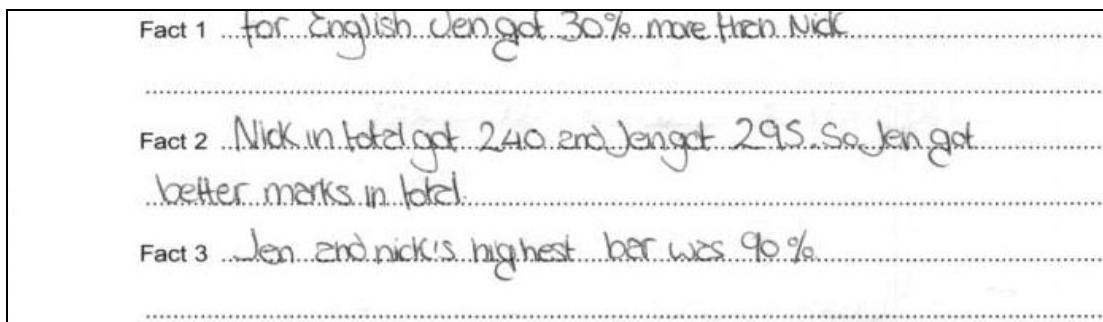 Fact 1 for English Jen got 30% more than Nick
Fact 2 Nick in total got 240 and Jen got 295. So Jen got
better marks in total.
Fact 3 Jen and nick's highest bar was 90%